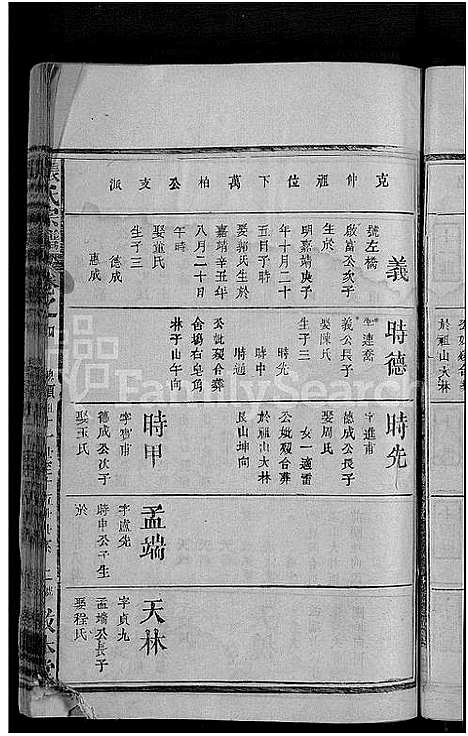 克仲祖位下萬柏公支派
義
號左橋
啟富公次子
生於
明嘉靖庚子
年十月二十
五日子時
娶郭氏生於
嘉靖辛丑年
八月二十日
午時
娶施氏
生子三
德成
惠成
時德
字連喬
義公長子
娶陳氏
生子三
時先
時中
時通
公妣殁合葬
舍塢右皂角
林子山午向
時先
字進甫
德成公長子
娶周氏
女一適雷
公妣殁合葬
於祖山大林
艮山坤向
時甲
字賓甫
德成公次子
娶王氏
孟端
字盧先
時甲公子生
於
天林
字貞九
孟端公長子
娶程氏
公妣殁合葬
於祖山大林
張氏宗譜
卷之四
FamilySearch